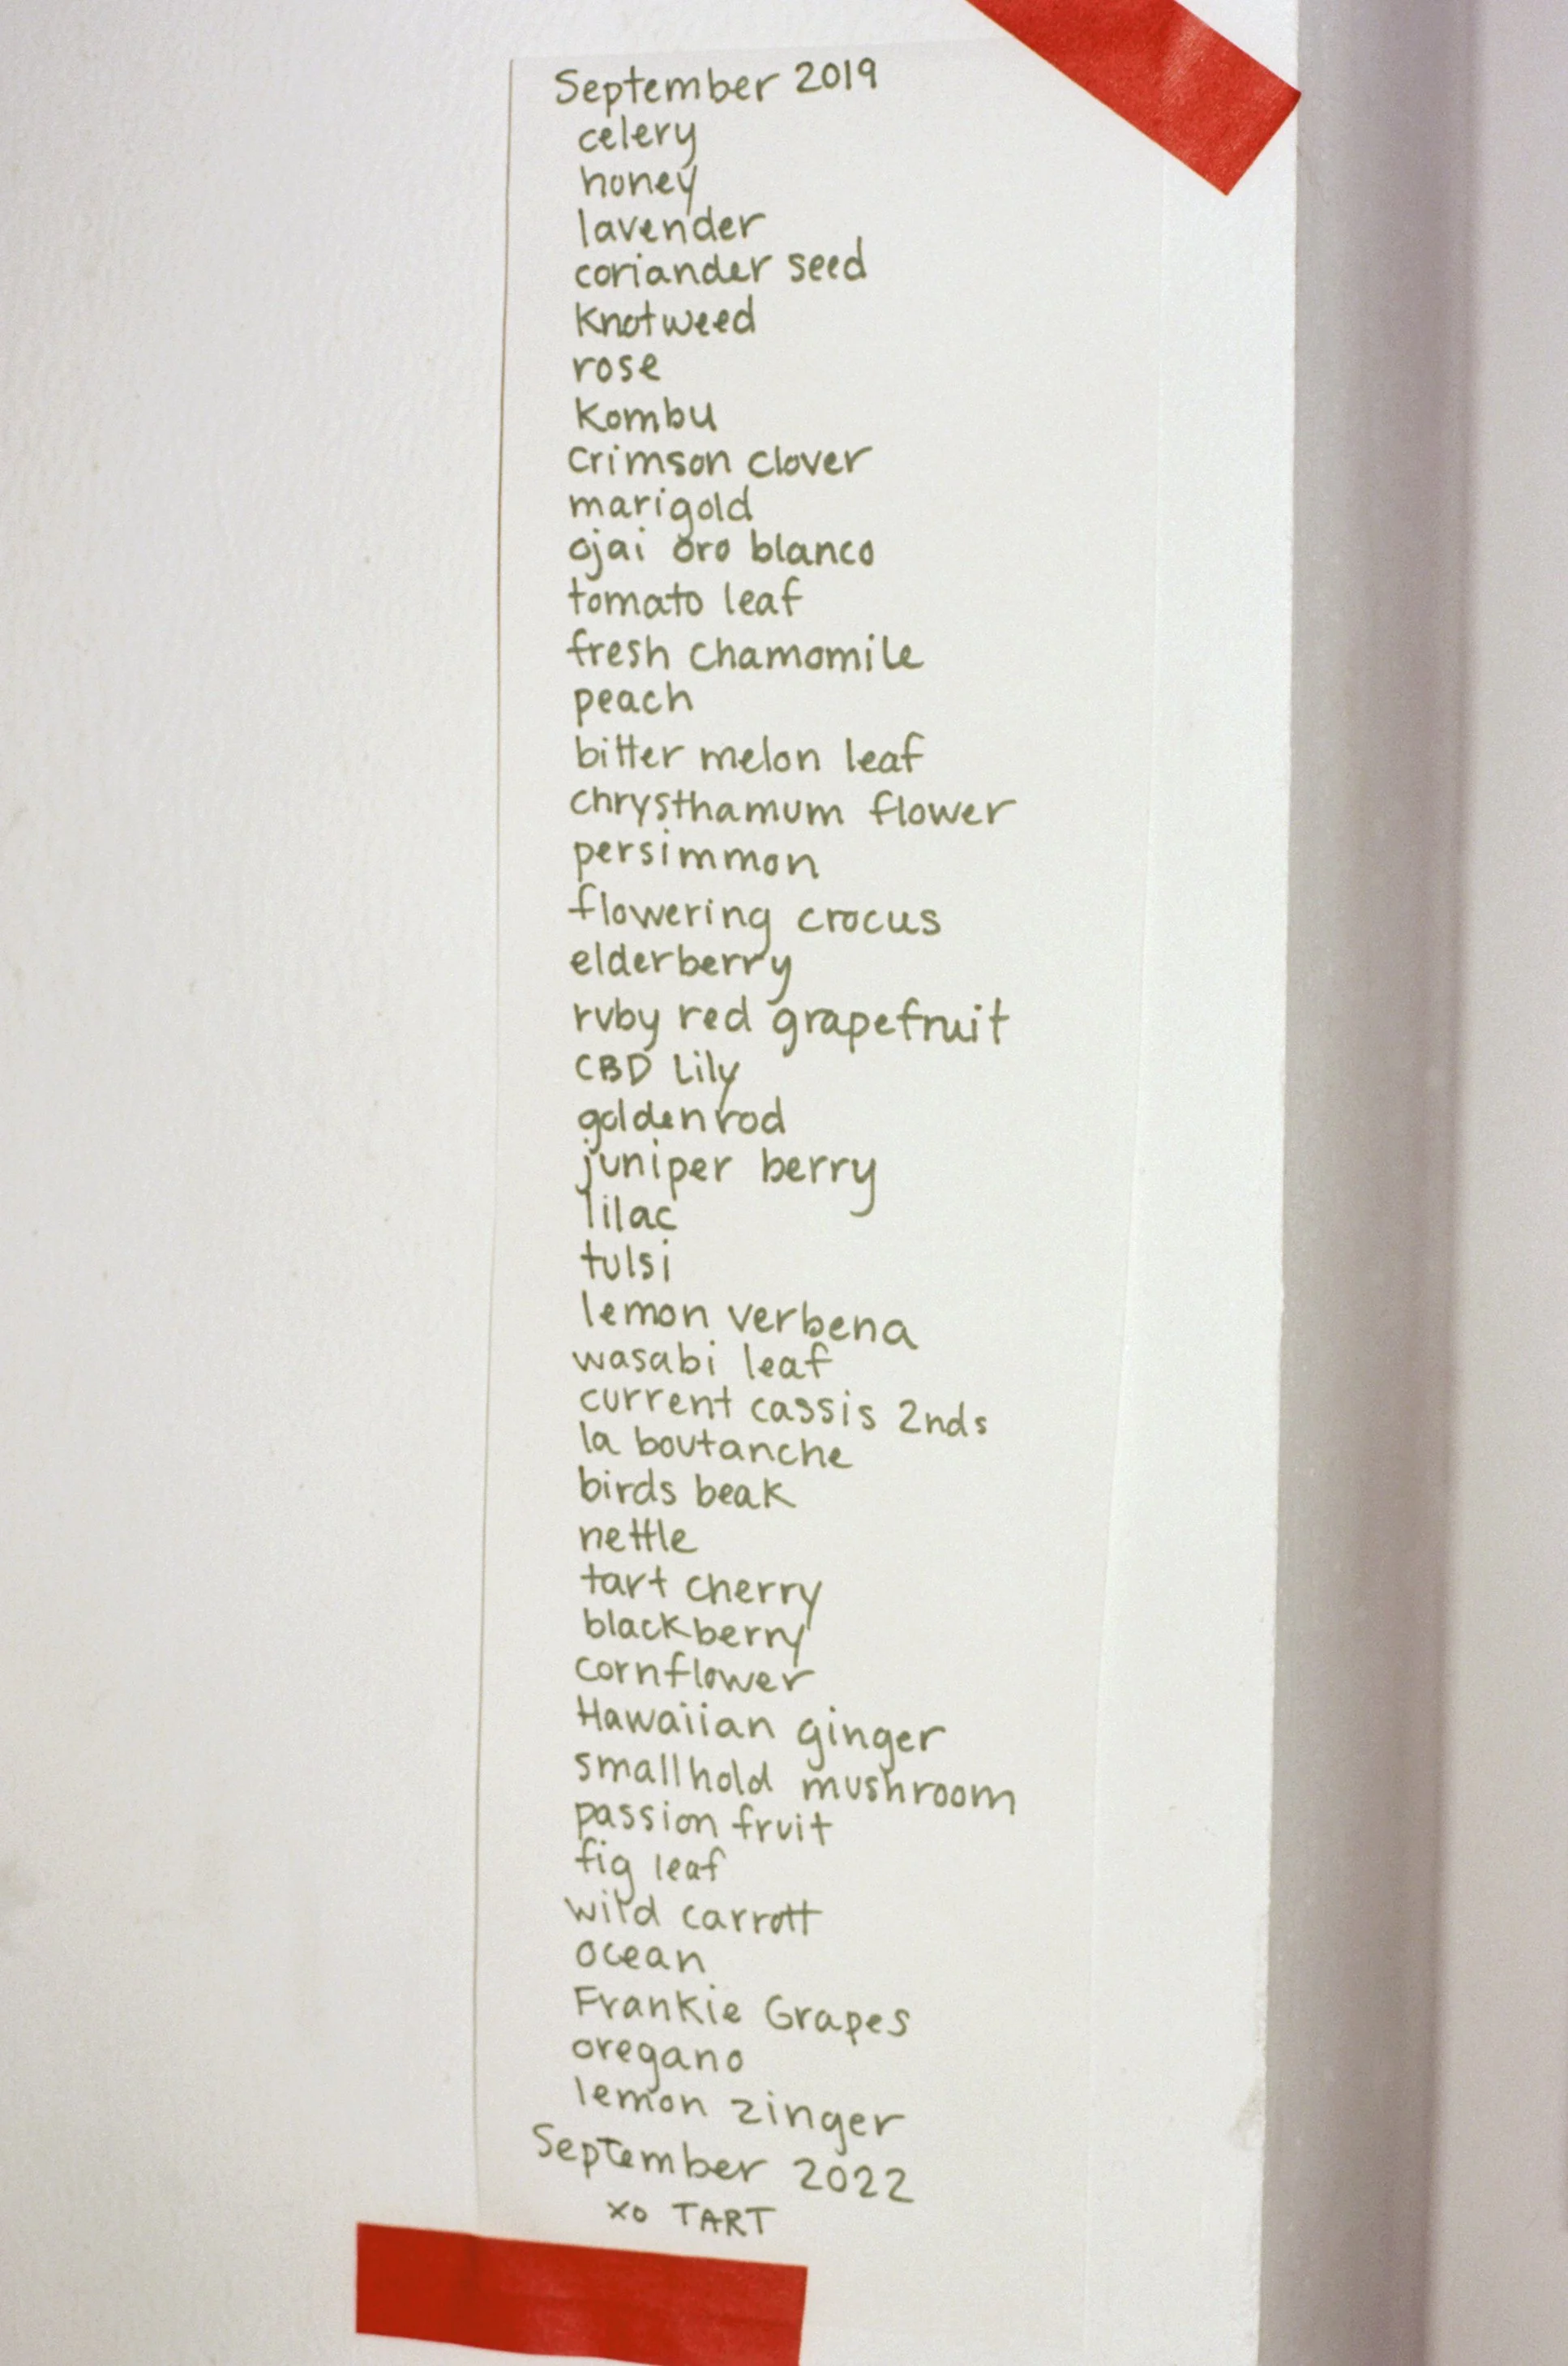 September 2019
celery
honey
lavender
coriander seed
Knotweed
rose
Kombu
crimson clover
marigold
ojai oro blanco
tomato leaf
fresh chamomile
peach
bitter melon leaf
chrysthamum flower
persimmon
flowering crocus
elderberry
ruby red grapefruit
CBD Lily
goldenrod
juniper berry
lilac
tulsi
lemon verbena
wasabi leaf
current cassis 2nds
la boutanche
birds beak
nettle
tart cherry
blackberry
cornflower
Hawaiian ginger
smallhold mushroom
passion fruit
fig leaf
wild carrott
ocean
Frankie Grapes
oregano
lemon zinger
September 2022
xo TART